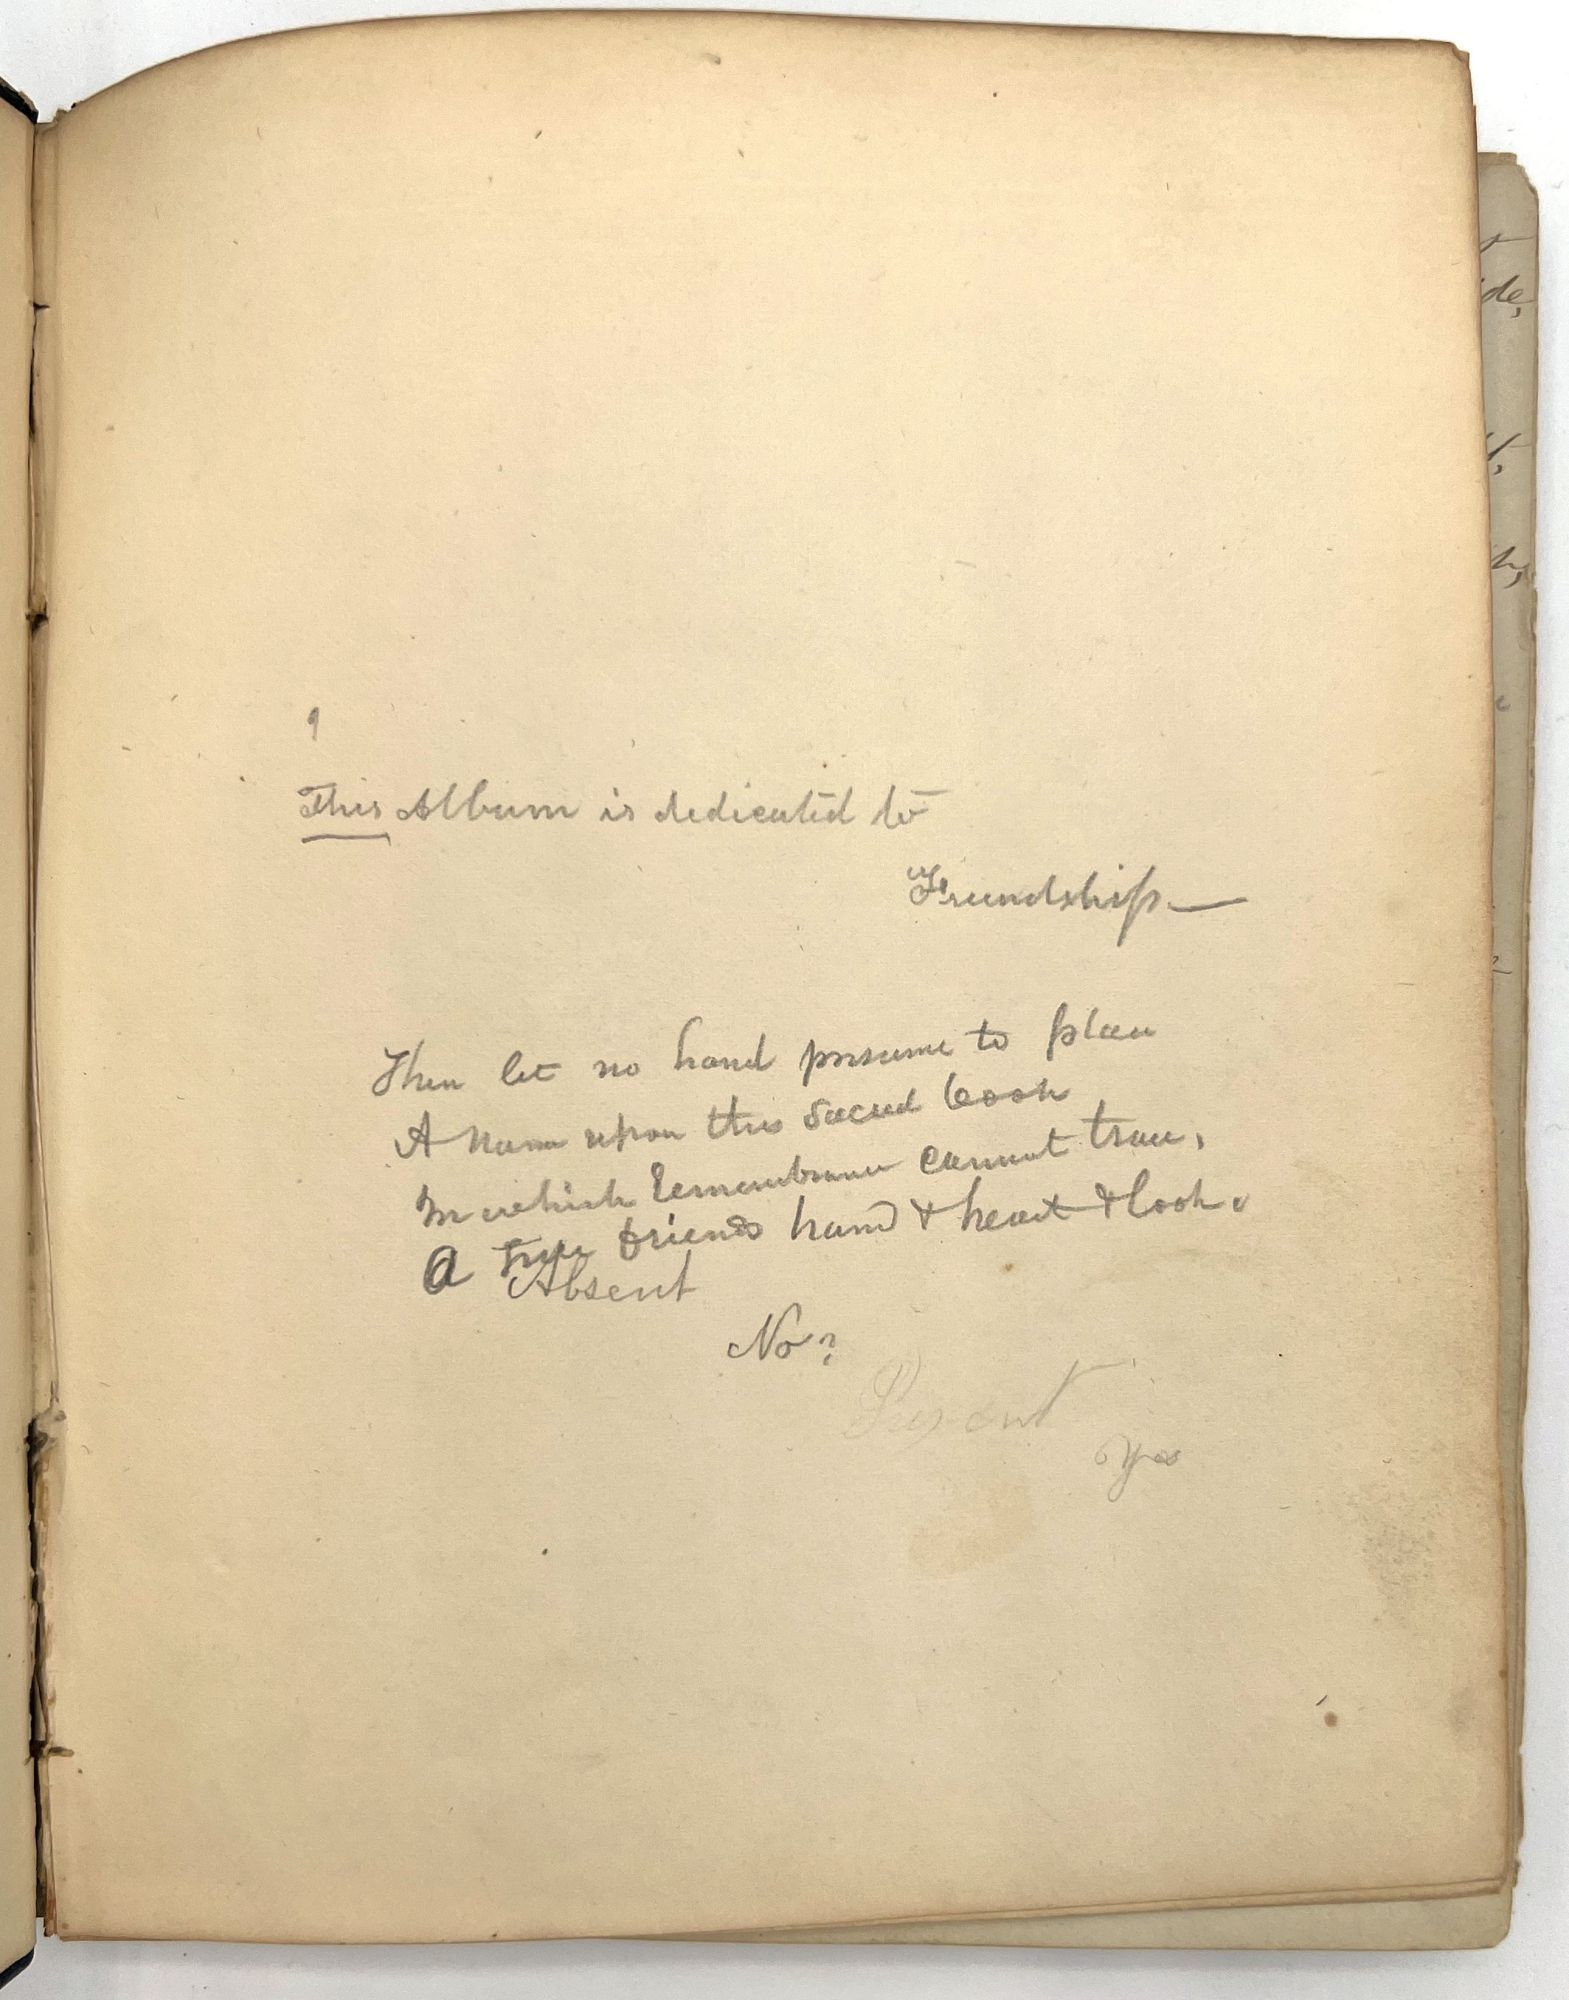 This Album is dedicated to
Friendship —
Then let no hand presume to place
A name upon this sacred book
In which Remembrance cannot trace,
A true friends hand & heart & look.
Absent
No?
Present
Yes
de,